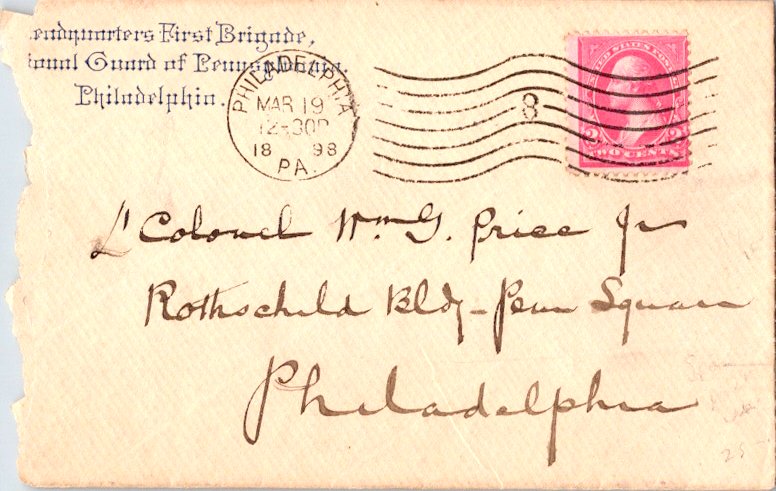 eadquarters First Brigade,
ional Guard of Pennsylvania.
Philadelphia.
PHILADELPHIA
MAR 19
12-30P
18 98
PA.
8
UNITED STATES POST
2 2
TWO CENTS
Lt Colonel Wm G. Price Jr
Rothschild Bldg - Penn Square
Philadelphia
25-